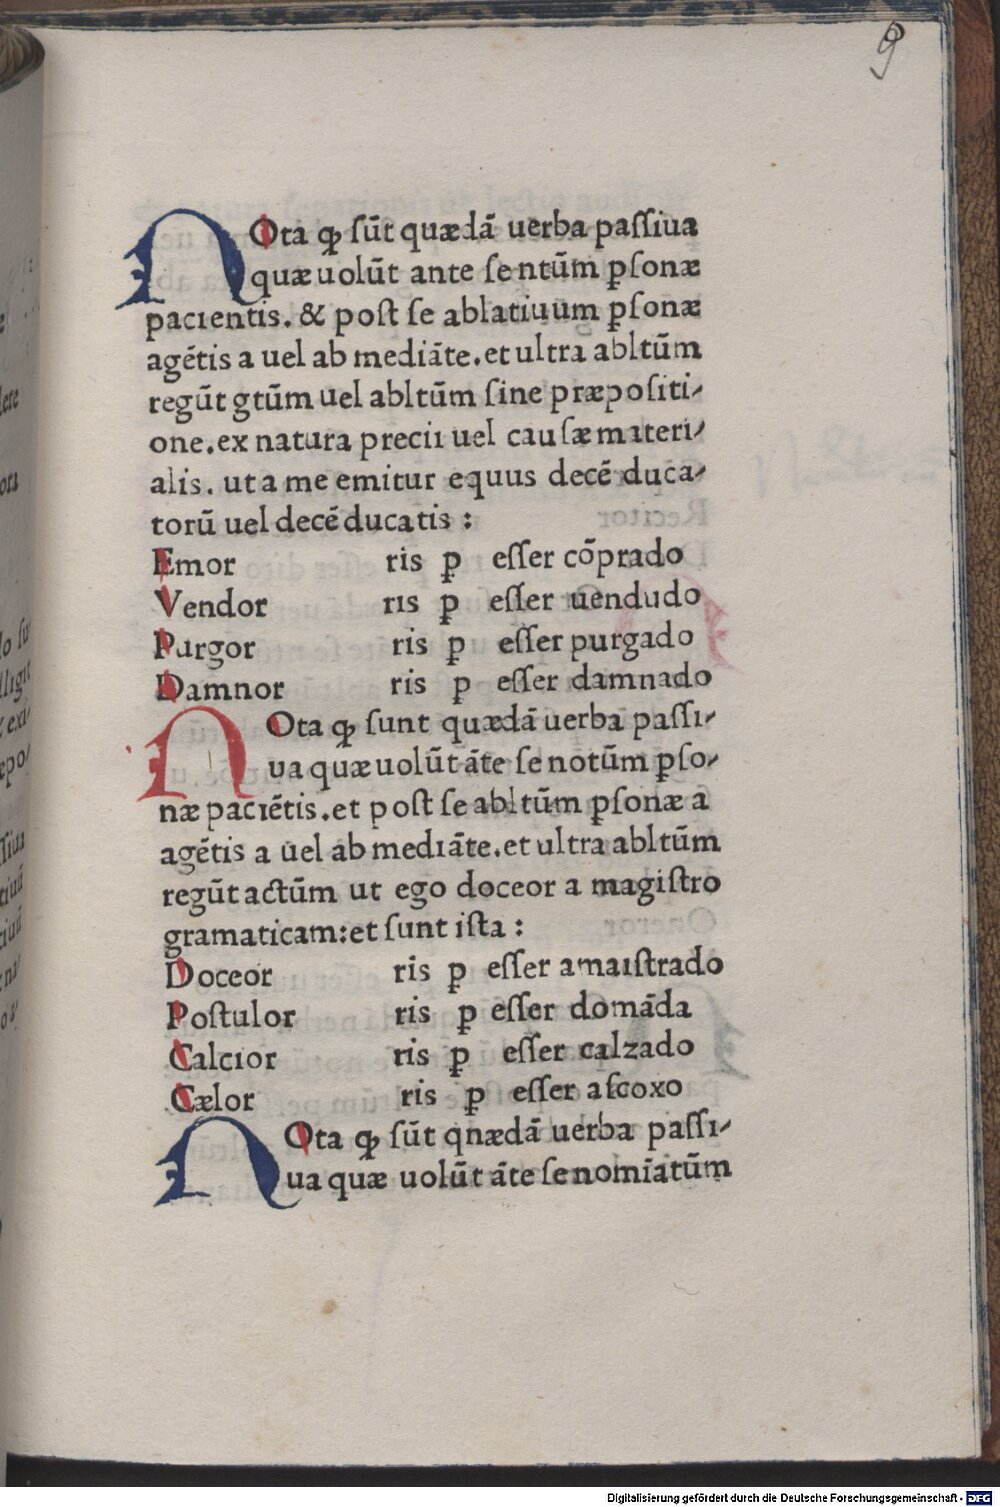 9
NOta ꝙ ſūt quædā uerba paſſiua
quæ uolūt ante ſe ntūm ꝑſonæ
pacientis. & poſt ſe ablatiuum ꝑſonæ
agētis a uel ab mediāte. et ultra abltūm
regūt gtūm uel abltūm ſine præpoſiti⸗
one. ex natura precii uel cauſæ materi⸗
alis. ut a me emitur equus decē duca⸗
torū uel decē ducatis :
Emor ris ꝑ eſſer cōprado
Vendor ris ꝑ eſſer uendudo
Purgor ris ꝑ eſſer purgado
Damnor ris ꝑ eſſer damnado
NOta ꝙ ſunt quædā uerba paſſi⸗
ua quæ uolūt āte ſe notūm ꝑſo⸗
næ paciētis. et poſt ſe abltūm ꝑſonæ a
agētis a uel ab mediāte. et ultra abltūm
regūt actūm ut ego doceor a magiſtro
gramaticam: et ſunt iſta :
Doceor ris ꝑ eſſer amaiſtrado
Poſtulor ris ꝑ eſſer domāda
Calcior ris ꝑ eſſer calzado
Cælor ris ꝑ eſſer aſcoxo
NOta ꝙ ſūt qnædā uerba paſſi⸗
ua quæ uolūt āte ſe nomīatūm
Digitalisierung gefördert durch die Deutsche Forschungsgemeinschaft - DFG